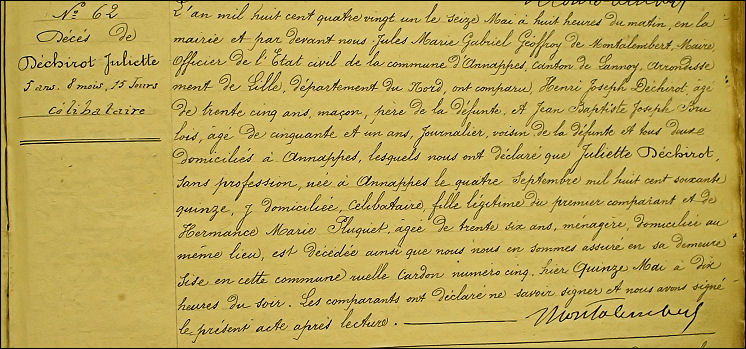 Nº 62
Décès de
Déchirot Juliette
5 ans. 8 mois, 15 Jours
célibataire
L'an mil huit cent quatre vingt un le seize Mai à huit heures du matin, en la
mairie et par devant nous Jules Marie Gabriel Geoffroy de Montalembert, Maire,
Officier de l'Etat civil de la commune d'Annappes, canton de Lannoy, Arrondisse
ment de Lille, département du Nord, ont comparu, Henri Joseph Déchirot, agé
de trente cinq ans, maçon, père de la défunte, et Jean Baptiste Joseph Bru
lois, agé de cinquante et un ans, Journalier, voisin de la défunte et tous deux
domiciliés à Annappes, lesquels nous ont déclaré que Juliette Déchirot,
sans profession, née à Annappes le quatre Septembre mil huit cent soixante
quinze, y domiciliée, célibataire, fille légitime du premier comparant et de
Hermance Marie Pluquet, agée de trente six ans, ménagère, domiciliée au
même lieu, est décédée ainsi que nous nous en sommes assuré en sa demeure
sise en cette commune ruelle Cardon numéro cinq, hier Quinze Mai à dix
heures du soir. Les comparants ont déclaré ne savoir signer et nous avons signé
le présent acte après lecture.
Montalembert